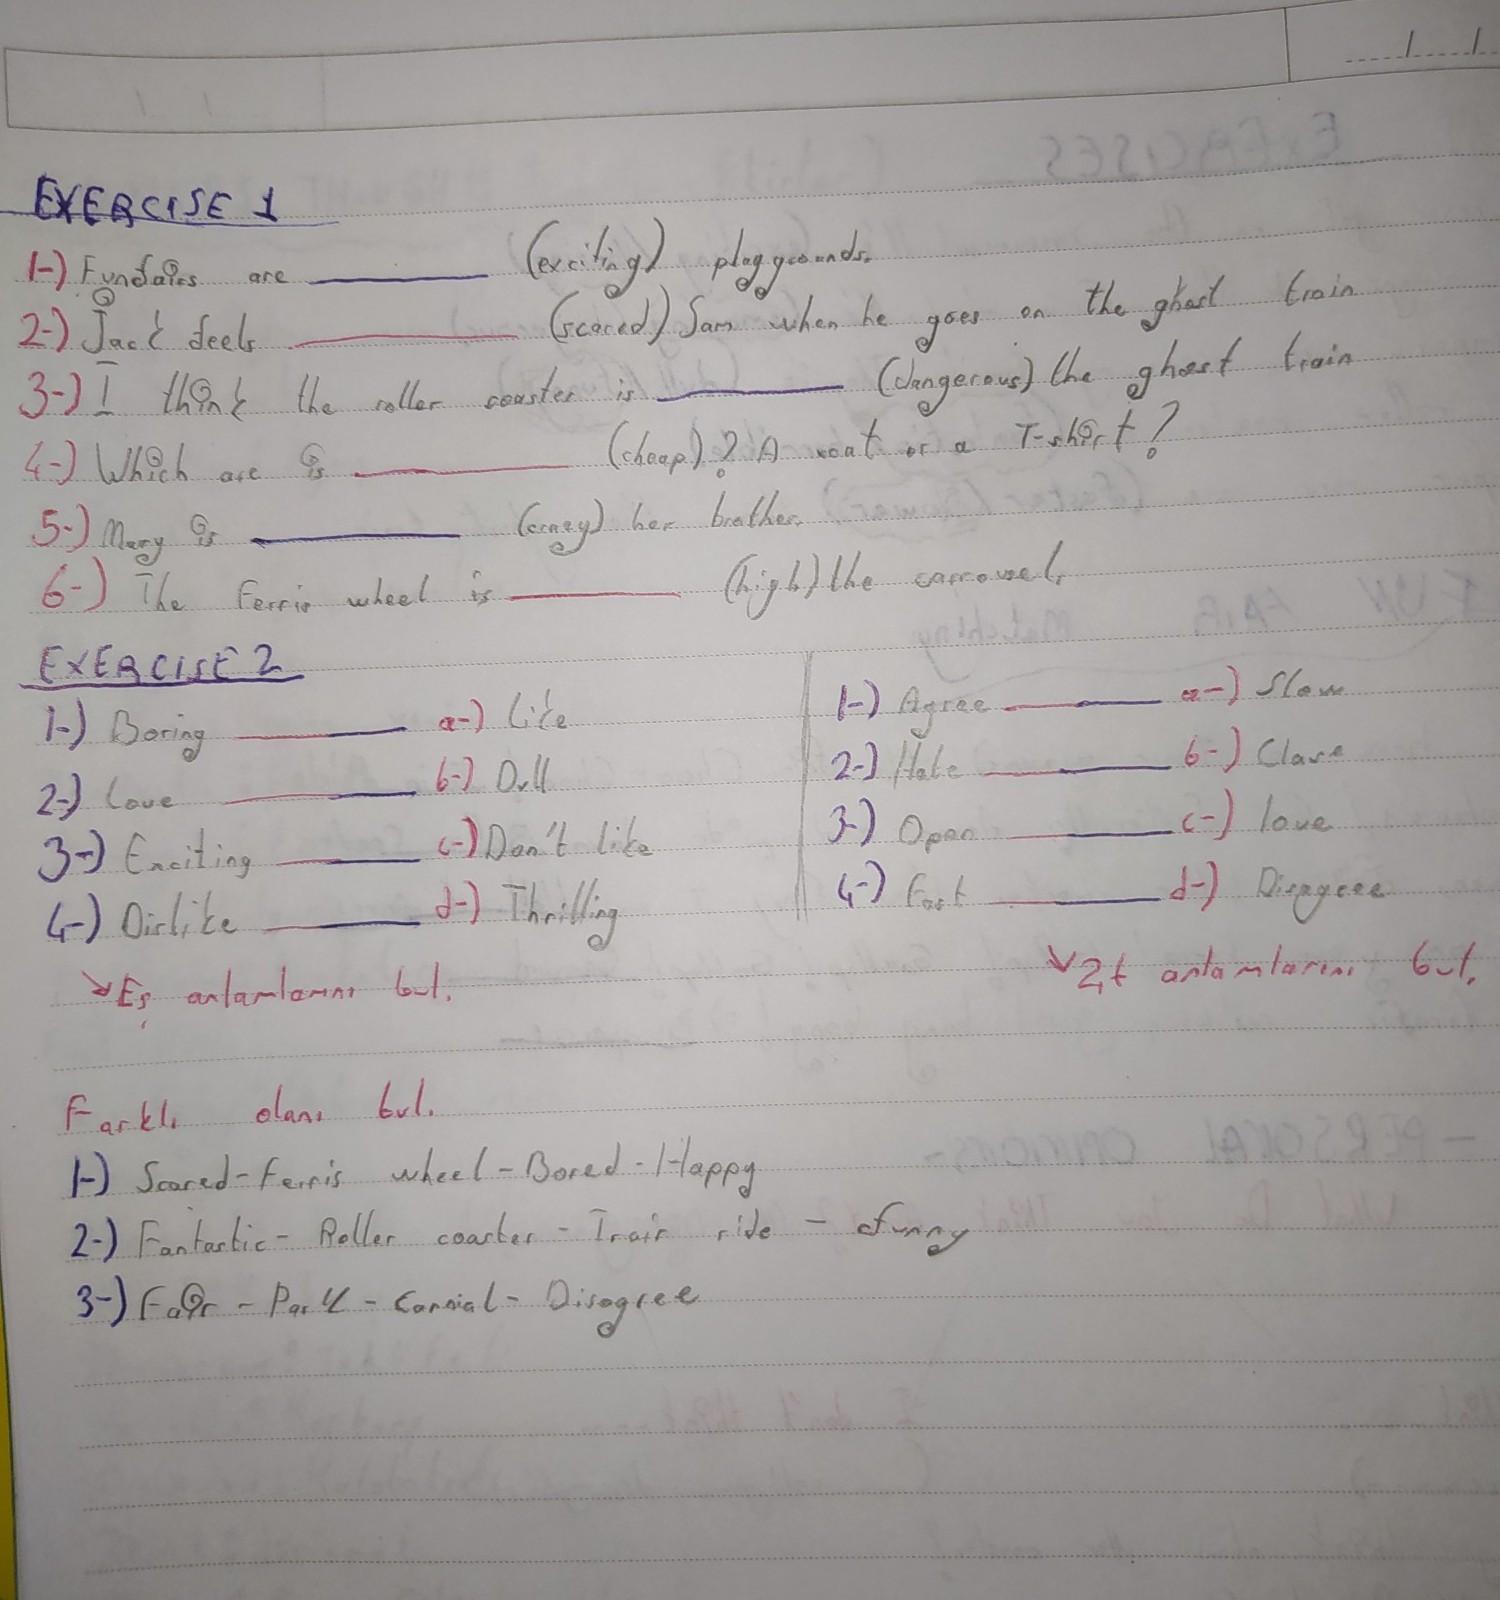 EXERCISE 1
1-) Fundairs are ______ (exciting) playgrounds.
2-) Jack feels ______ (scared) Sam when he goes on the ghost train
3-) I think the roller coaster is ______ (dangerous) the ghost train
4-) Which are is ______ (cheap)? A coat or a T-shirt?
5-) Mary is ______ (crazy) her brother.
6-) The Ferris wheel is ______ (high) the carrousel.
EXERCISE 2
1-) Boring ______ a-) Like
2-) Love ______ b-) Dull
3-) Exciting ______ c-) Don't like
4-) Dislike ______ d-) Thrilling
↘Eş anlamlarını bul.
1-) Agree ______ a-) Slow
2-) Hate ______ b-) Close
3-) Open ______ c-) love
4-) Fast ______ d-) Disagree
↘Zıt anlamlarını bul.
Farklı olanı bul.
1-) Scared - Ferris wheel - Bored - Happy
2-) Fantastic - Roller coaster - Train ride - funny
3-) Fair - Park - Carnial - Disagree